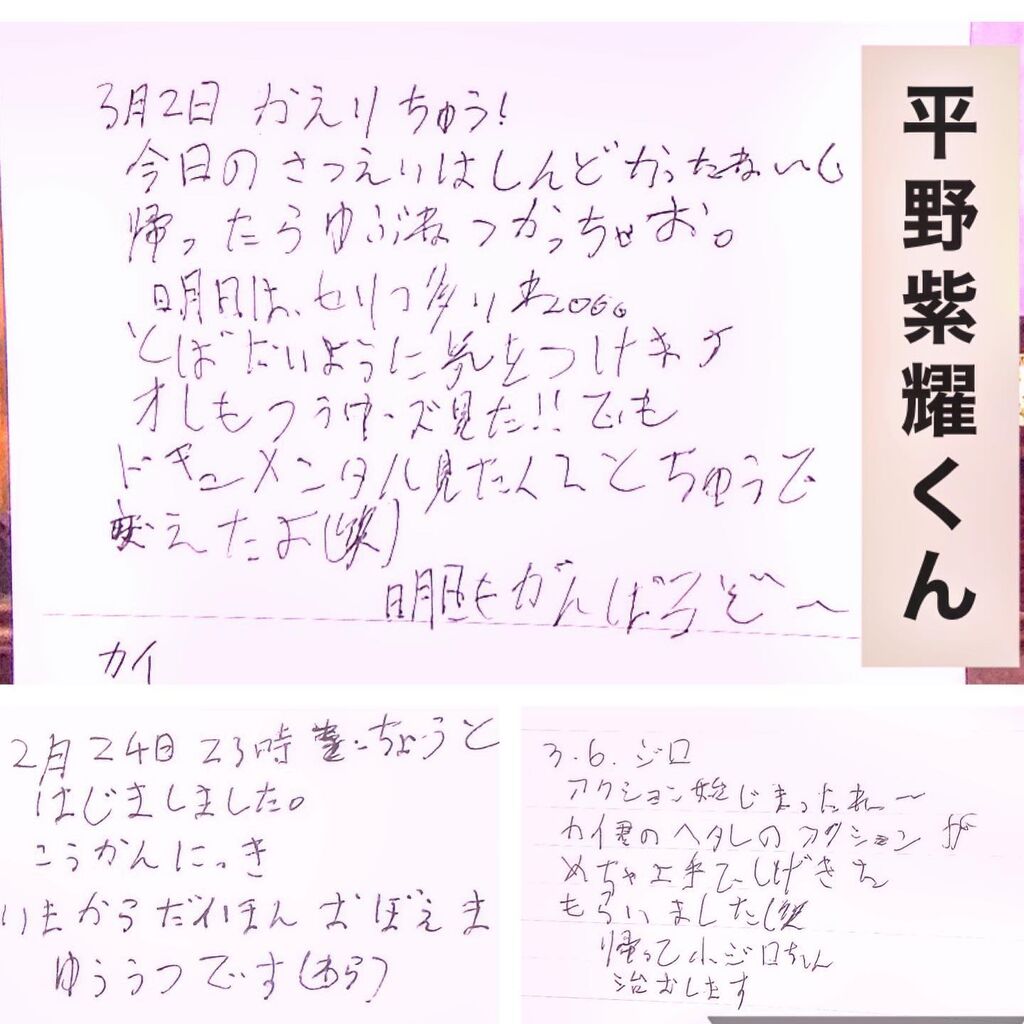 3月2日 かえりちゅう!
今日のさつえいはしんどかったね〜し
帰ったらゆぶねつかっちゃお。
明日は、セリフ多いね。。。
とばだいように気をつけます
オレもつうゆーズ見た!!でも
ドキュメンタル見たくてとちゅうで
変えたよ(笑)
明日もがんばろぞ〜
カイ
平野紫耀くん
2月24日 23時 ちょうど
はじましました。
こうかんにっき
いまからだいほんおぼえま
ゆううつです(わら)
3.6. ジロ
アクション始じまったね〜
カイ君のヘタレのアクションが
めちゃ上手でしげきを
もらいました(笑
帰って小ジロちゃん
治おします